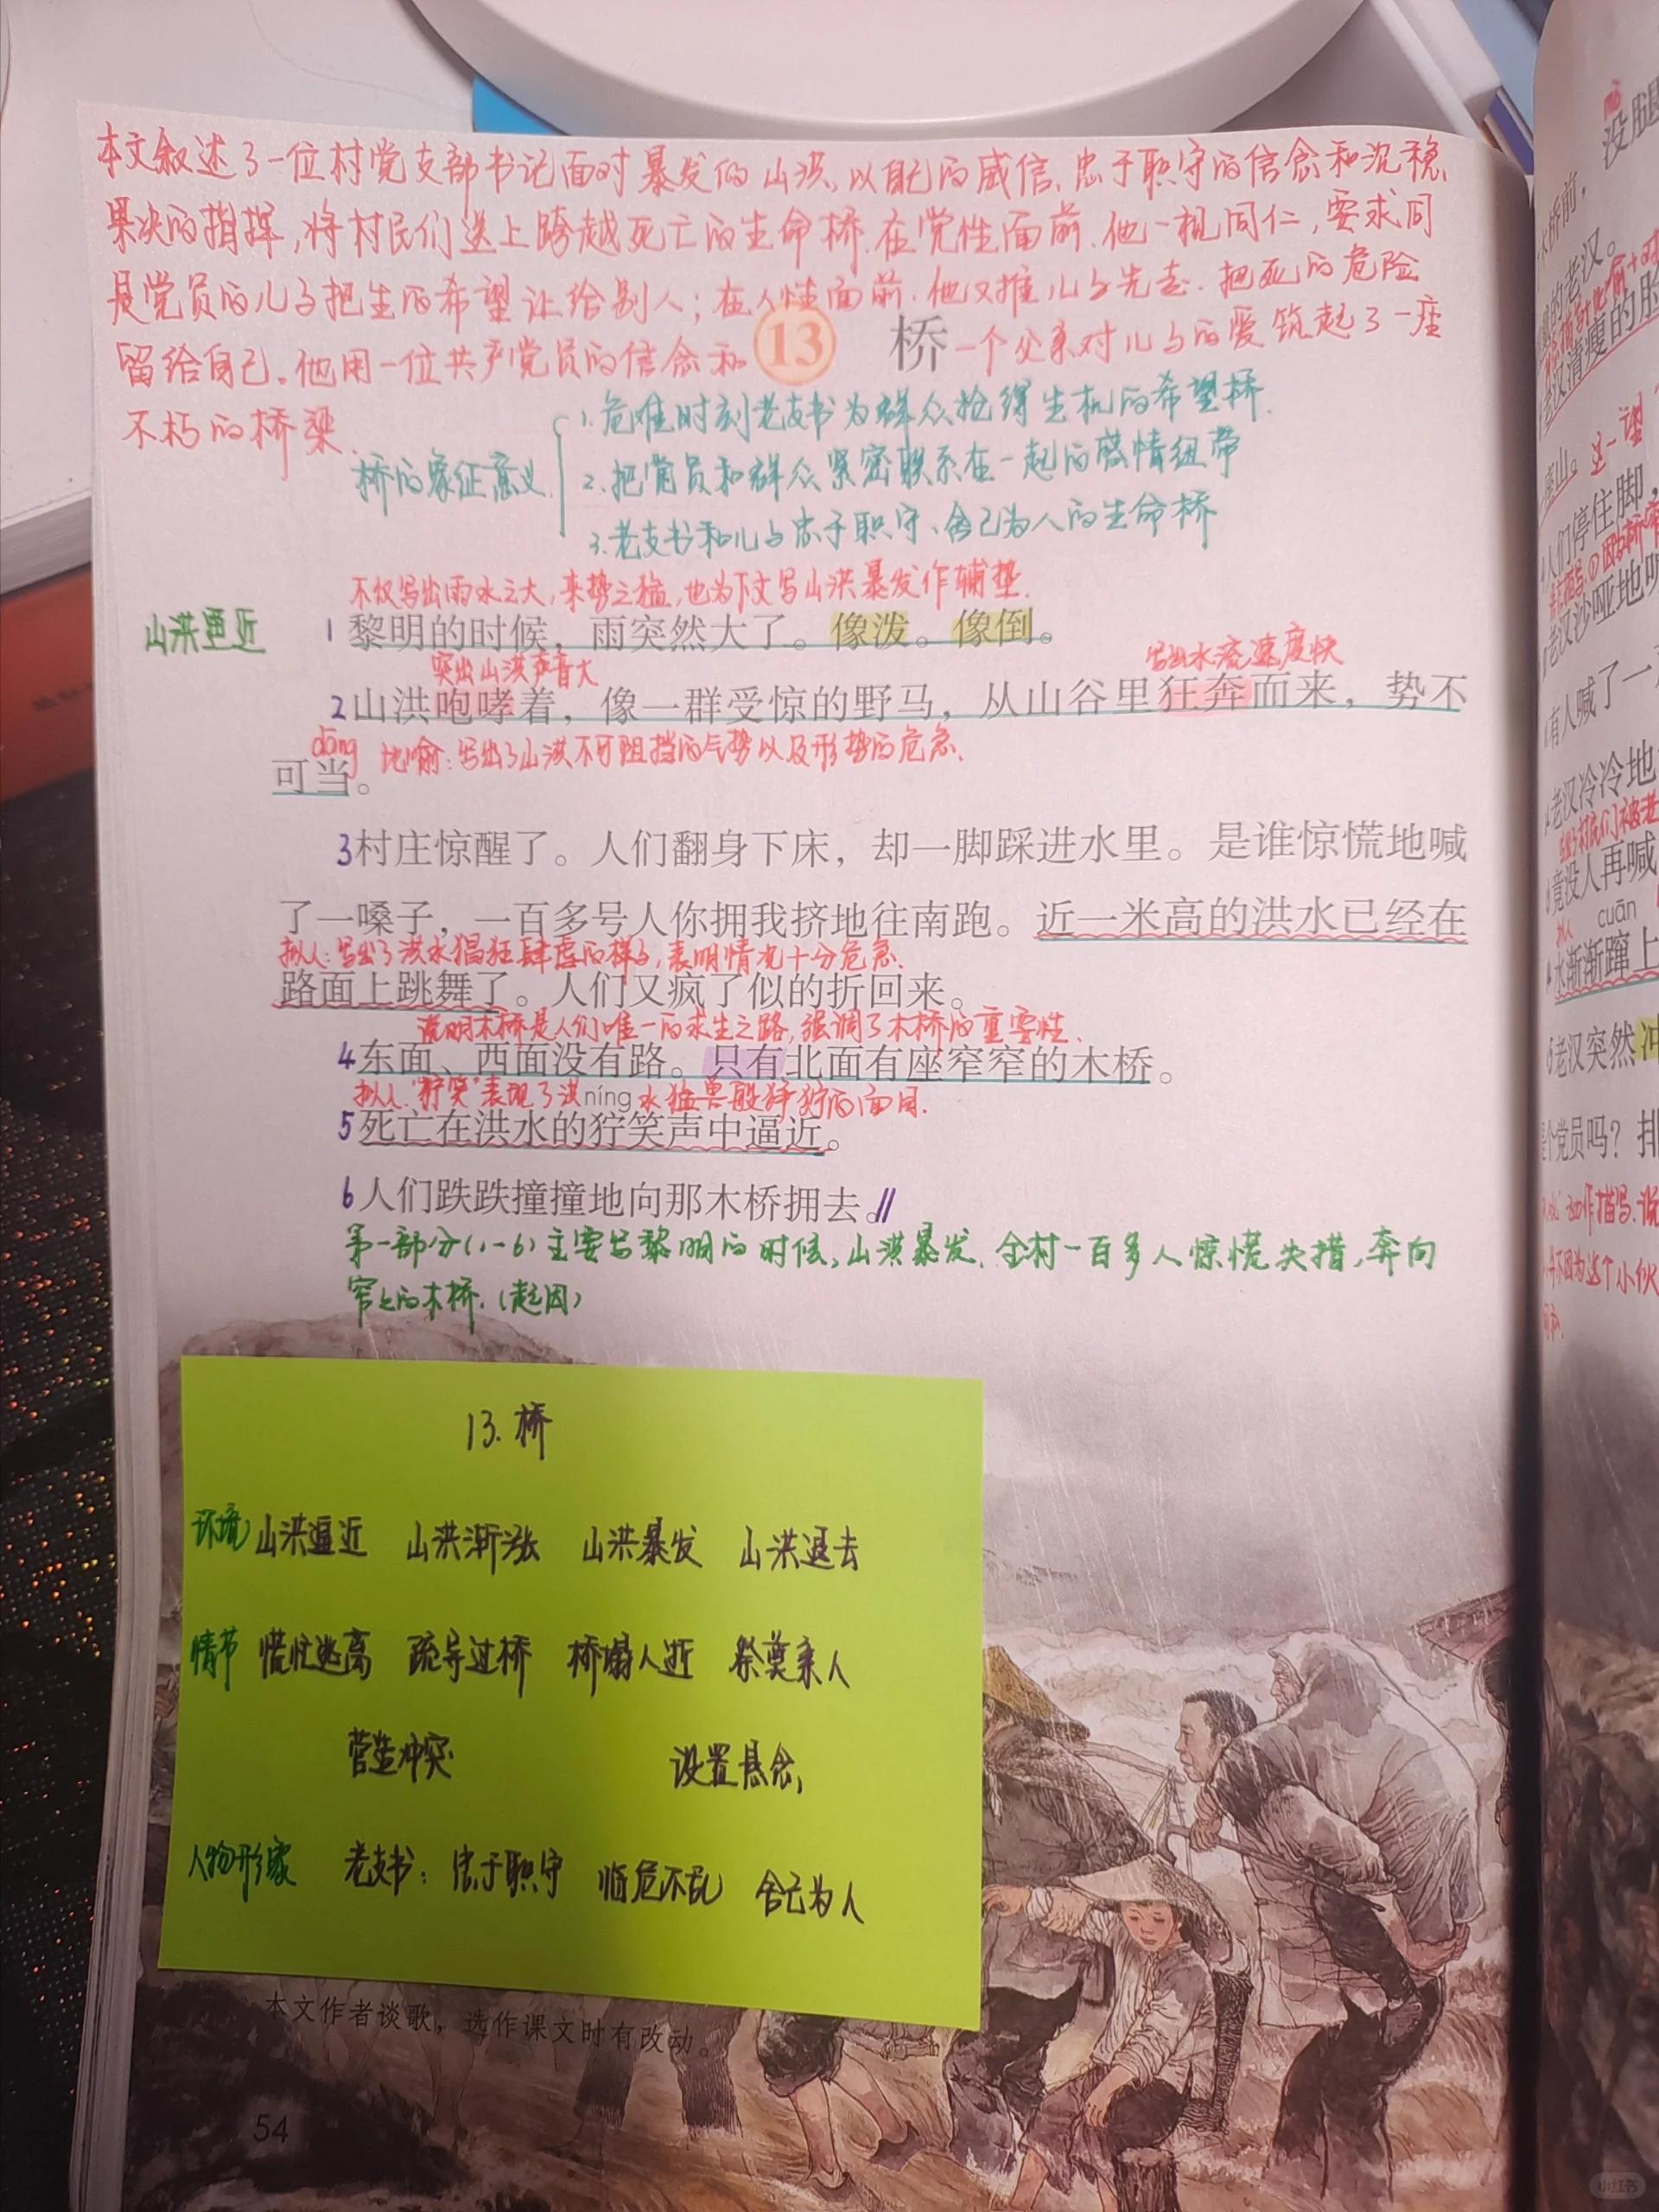 本文叙述了一位村党支部书记面对暴发的山洪,以自己的威信、忠于职守的信念和沉稳
果决的指挥,将村民们送上跨越死亡的生命桥.在党性面前.他一视同仁,要求同
是党员的儿子把生的希望让给别人;在人性面前.他又推儿子先走.把死的危险
留给自己。他用一位共产党员的信念和
13 桥
一个父亲对儿子的爱筑起了一座
不朽的桥梁.
桥的象征意义
1.危难时刻老支书为群众抢得生机的希望桥.
2.把党员和群众紧密联系在一起的感情纽带
3.老支书和儿子忠于职守、舍己为人的生命桥
不仅写出雨水之大,来势之猛,也为下文写山洪暴发作铺垫.
山洪逼近
1黎明的时候，雨突然大了。像泼。像倒。
突出山洪声音大
写出水流速度快
2山洪咆哮着，像一群受惊的野马，从山谷里狂奔而来，势不
dāng
比喻:写出了山洪不可阻挡的气势以及形势的危急.
可当。
3村庄惊醒了。人们翻身下床，却一脚踩进水里。是谁惊慌地喊
了一嗓子，一百多号人你拥我挤地往南跑。近一米高的洪水已经在
拟人:写出了洪水猖狂肆虐的样子,表明情况十分危急.
路面上跳舞了。人们又疯了似的折回来。
说明木桥是人们唯一的求生之路,强调了木桥的重要性.
4东面、西面没有路。只有北面有座窄窄的木桥。
拟人."狞笑"表现了洪水猛兽般狰狞的面目.
níng
5死亡在洪水的狞笑声中逼近。
6人们跌跌撞撞地向那木桥拥去。//
第一部分(1-6)主要写黎明的时候,山洪暴发.全村一百多人惊慌失措,奔向
窄窄的木桥.(起因)
13.桥
环境 山洪逼近 山洪渐涨 山洪暴发 山洪退去
情节 慌忙逃离 疏导过桥 桥塌人逝 祭奠亲人
营造冲突 设置悬念
人物形象 老支书: 忠于职守 临危不乱 舍己为人
本文作者谈歌，选作课文时有改动。
54
没腿
木桥前，
的老汉。
老汉清瘦的脸
座山。
这一
人们停住脚，
老汉沙哑地
有人喊了一
老汉冷冷地
竟没人再喊
cuān
拟人
水渐渐蹿上
老汉突然冲
个党员吗？排
动作描写.
并不因为这个小伙
小红书